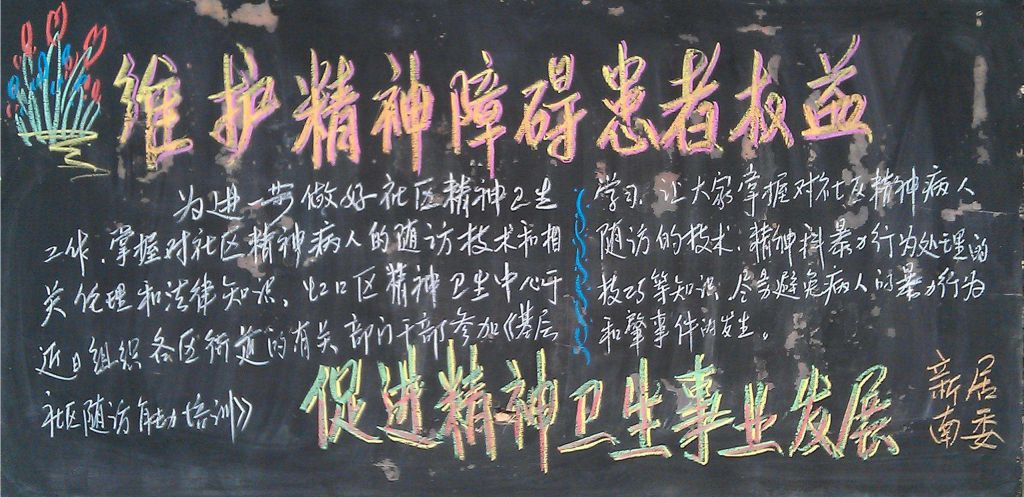 维护精神障碍患者权益
为进一步做好社区精神卫生
工作、掌握对社区精神病人的随访技术和相
关伦理和法律知识、虹口区精神卫生中心于
近日组织各区街道的有关部门干部参加《基层
社区随访能力培训》
学习，让大家掌握对社区精神病人
随访的技术，精神科暴力行为处理的
技巧等知识，尽量避免病人的暴力行为
和肇事件的发生。
促进精神卫生事业发展
新南
居委